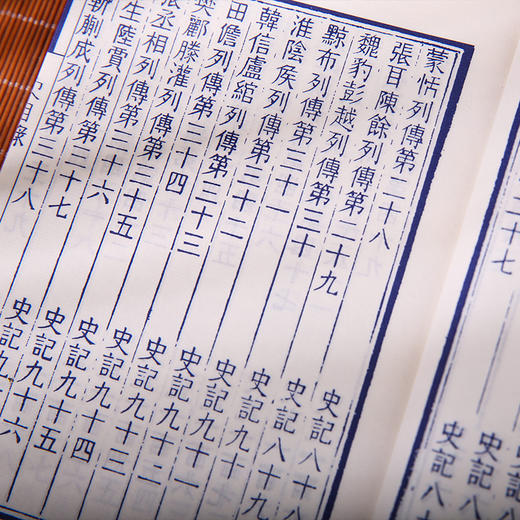 二十七
史記
史記八
史記八
蒙恬列傳第二十八 史記八十八
張耳陳餘列傳第二十九 史記八十九
魏豹彭越列傳第三十 史記九十
黥布列傳第三十一 史記九十一
淮陰侯列傳第三十二 史記九十二
韓信盧綰列傳第三十三 史記九十三
田儋列傳第三十四 史記九十四
酈滕灌列傳第三十五 史記九十五
丞相列傳第三十六 史記九十六
生陸賈列傳第三十七
蒯成列傳第三十八